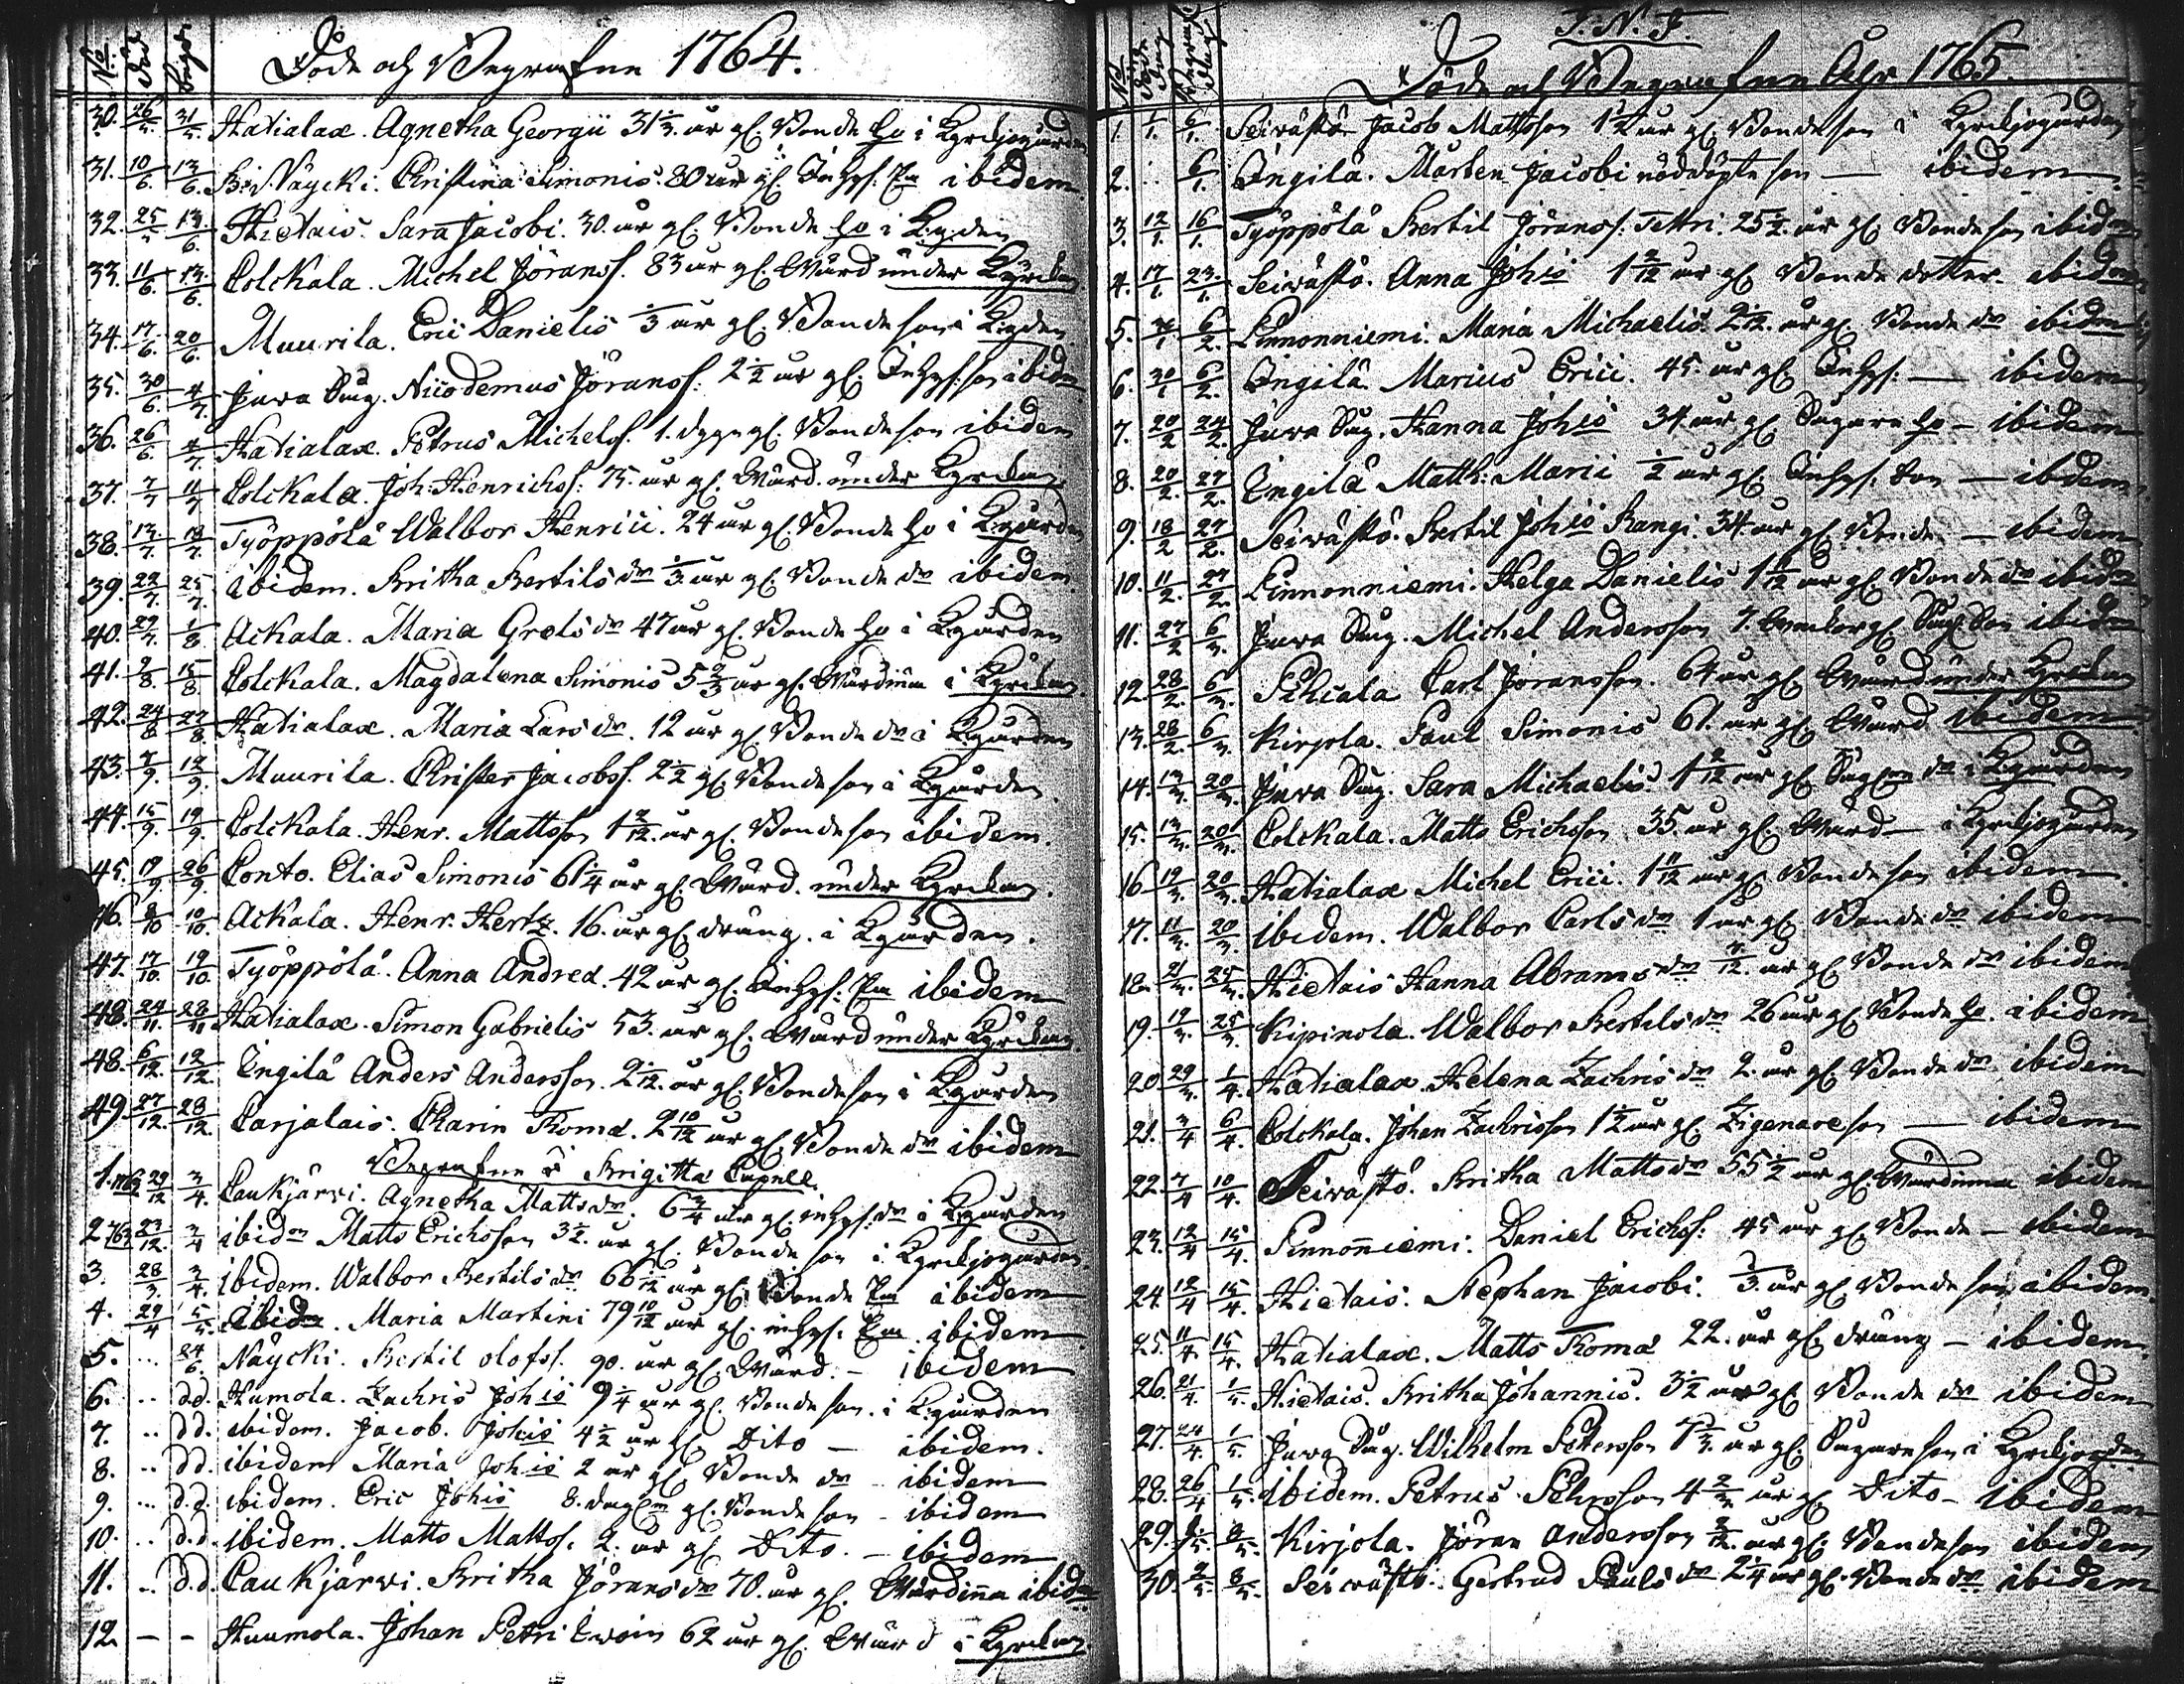 No. död begr. Döde och Begrafne 1764.
30. 26/5. 31/5. Hatialax. Agnetha Georgii 31 1/3. år gl. Bonde hu i Kyrckjogården
31. 10/6. 13/6. Näycki. Christina Simonis. 80 år gl. Inhys. Ea ibidem
32. 25/5. 13/6. Hietais. Sara Jacobi. 30. år gl. Bonde hu i K:gden
33. 11/6. 13/6. Colckala. Michel Jöranss. 83 år gl. Wärd under Kyrckan
34. 17/6. 20/6. Muurila. Eric Danielis 1/3 år gl. Bonde son i K:gden
35. 30/6. 4/7. Juwa Sug. Nicodemus Jöranss: 2 1/2 år gl. Inhys: son ibidm
36. 26/6. 4/7. Hatialax. Petrus Michelss. 1. dygn gl. Bonde son ibidem
37. 7/7 11/7 Colckala. Joh: Henrichss: 75. år gl. Wärd. under Kyrckan
38. 13/7. 18/7. Työppölä Walbor Henrici. 24 år gl. Bonde hu i K:gården
39. 22/7. 25/7. ibidem. Britha Bertils dr 1/3 år gl. Bonde dr ibidem
40. 27/7. 1/8 Ackala. Maria Grels dr 47 år gl. Bonde hu i K:gården
41. 9/8. 15/8. Colckala. Magdalena Simonis 5 2/3 år gl. Wärdinna i Kyrckan.
42. 24/8 27/8. Hatialax. Maria Lars dr. 12 år gl. Bonde dr i K:gården
43. 7/9. 12/9. Muurila. Christer Jacobss. 2 1/2 gl. Bonde son i K:gården
44. 15/9. 19/9. Colckala. Henr. Mattsson 1 2/12. år gl. Bonde son ibidem.
45. 19/9. 26/9. Conto. Elias Simonis 61 1/4 år gl. Wärd. under Kyrckan.
46. 8/10 10/10. Ackala. Henr. Hertz. 16. år gl. dräng. i K:gården.
47. 17/10. 19/10 Työppölä. Anna Andreæ. 42 år gl. Inhys: Ea ibidem
48. 24/11. 28/11 Hatialax. Simon Gabrielis 53. år gl. Wärd under Kyrckan.
48. 6/12. 12/12. Ingilä Anders Andersson. 2 1/12. år gl. Bonde son i K:gården
49. 27/12. 28/12. Carjalais. Charin Thomæ. 2 10/12 år gl. Bonde dr ibidem
Begrafne i Brigitta Capell.
1. 1763 29/12 3/4. Caukjärvi. Agnetha Matts dr. 6 3/4 år gl. inhys. dr i K:gården
2 1763 27/12. 3/4 ibidm Matts Erichsson 3 1/2. år gl. Bonde son i Kyrckjogården.
3. 28/3. 3/4. ibidem. Walbor Bertils dr 66 1/12 år gl. Bonde Ea ibidem
4. 29/4 5/5. ibidm. Maria Martini 79 10/12 år gl. inhys. Ea. ibidem
5. ... 24/6. Näycki. Bertil olofss. 90. år gl. Wärd. – ibidem
6. .. d.d. Humola. Zachris Johis 9 1/4 år gl. Bonde son. i K:gården
7. .. d.d. ibidem. Jacob. Johis 4 1/2 år gl. Dito – ibidem.
8. .. d.d. ibidem Maria Johis 2 år gl. Bonde dr – ibidem
9. ... d.d. ibidem. Eric Johis 8. dagar gl. Bonde son – ibidem
10. .. d.d. ibidem. Matts Mattss. 2. år gl. Dito. – ibidem
11. .. d.d. Caukjärwi. Britha Jörans dr 70. år gl. Wärdinna ibidm
12. – – Huumola. Johan Petri 62 år gl. Wärd i Kyrckan
T. N. J.
No. Döde dag Begrafne dag Döde och Begrafne Åhr 1765.
1. 1/1. 6/1. Seiwästö Jacob Mattsson 1 1/2 år gl. Bonde son i Kyrckjogården
2. .. 6/1. Ingilä. Mårten Jacobi nöddöpte son — ibidem
3. 12/1. 16/1. Työppölä Bertil Jöranss: Tettri. 25 1/2. år gl. Bonde son ibidm
4. 17/1. 23/1. Seiwästö. Anna Johis 1 2/12 år gl Bonde dotter. ibidm
5. 6/2. Pinnonniemi. Maria Michaelis. 2 1/12. år gl. Bonde dr ibidem
6. 30/1 6/2. Ingilä. Marius Erici. 45. år gl. Inhys: — ibidem
7. 20/2 24/2. Juwa Sug. Hanna Johis 34 år gl. Sugare hu – ibidem
8. 20/2. 27/2. Ingilä Matth: Marii 1/2 år gl. Inhys. son — ibidem
9. 18/2 27/2. Seiwästö. Bertil Johis Rangi. 34. år gl. Bonde — ibidem
10. 11/2. 27/2. Pinnonniemi. Helga Danielis 1 1/12 år gl. Bonde dr ibidm
11. 27/2 6/3. Juwa Sug. Michel Andersson 7. weckor gl. Sug: son ibidm
12. 28/2. 6/3. Pihcala Carl Jöransson. 64 år gl. Wärd under Kyrckan
13. 28/2. 6/3. Kirjola. Paul Simonis 61. år gl. Wärd. ibidem.
14. 13/3. 20/3. Juwa Sug. Sara Michaelis. 1 2/12 år gl. Sugare dr i K:gården
15. 13/3. 20/3. Colckala. Matts Erichsson 35. år gl. Wärd – i Kyrckjogården
16 19/3. 20/3. Hatialax Michel Erici. 1 11/12 år gl. Bonde son ibidem.
17. 11/3. 20/3. ibidem. Walbor Carls dr 1 år gl. Bonde dr ibidem
18. 21/3. 25/3. Hietais Hanna Abrams dr 7/12. år gl. Bonde dr ibidem
19. 19/3. 25/3. Kipinola. Walbor Bertils dr 26 år gl. Bonde hu. ibidem
20. 29/3. 1/4. Hatialax Helena Zachris dr 2. år gl. Bonde dr ibidem
21. 3/4 6/4. Colckala. Johan Zachrisson 1 1/2 år gl. Zigenare son — ibidem
22. 7/4 10/4. Seiwästö. Britha Matts dr 55 1/2 år gl. Wärdinna ibidem
23. 12/4 15/4. Pinnoniemi. Daniel Erichss: 45 år gl. Bonde – ibidem
24. 12/4 15/4. Hietais. Stephan Jacobi. 1/3. år gl. Bonde son ibidem.
25. 11/4. 15/4. Hatialax. Matts Thomæ 22. år gl. dräng – ibidem.
26. 21/4. 1/5. Hietais. Britha Johannis. 3 1/2 år gl. Bonde dr ibidem
27. 24/4. 1/5. Juwa Sug. Wilhelm Pettersson 7 1/3. år gl. Sugare son i Kyrckjogden
28. 26/4 1/5. ibidem. Petrus Pehrsson 4 2/3 år gl. Dito – ibidem
29. 8/5. Kirjola. Jöran andersson 2/12. år gl. Bonde son ibidem
30. 2/5. 8/5. Seiwästö. Gertrud Pauls dr 2 1/4 år gl. Bonde dr. ibidem